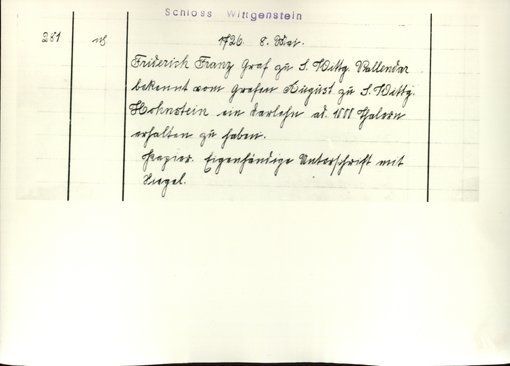 Schloss Wittgenstein
281
1726. 8. Mai.
Friderich Franz Graf zu S. Wittg. Vallendar
bekennt vom Grafen August zu S. Wittg.
Hohnstein ein Darlehn ad. 1000 Thalern
erhalten zu haben.
Papier. Eigenhändige Unterschrift mit
Siegel.